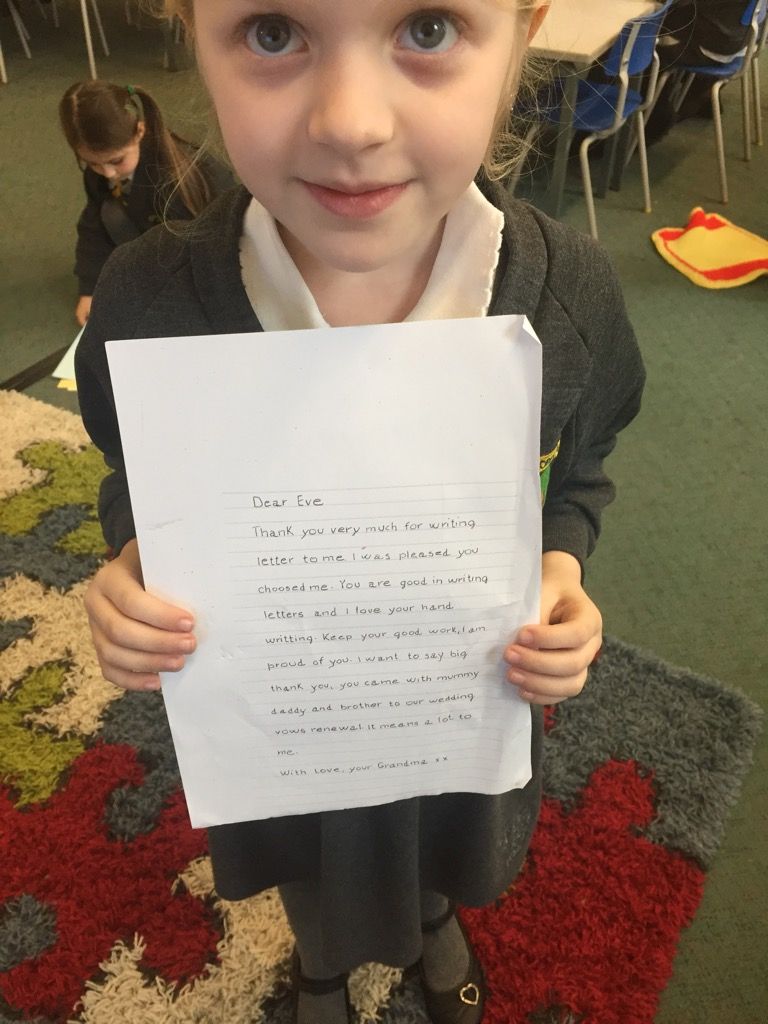 Dear Eve
Thank you very much for writing
letter to me I was pleased you
choosed me. You are good in writing
letters and I love your hand
writting. Keep your good work, I am
proud of you. I want to say big
thank you, you came with mummy
daddy and brother to our wedding
vows renewal it means a lot to
me.
With Love, your Grandma xx